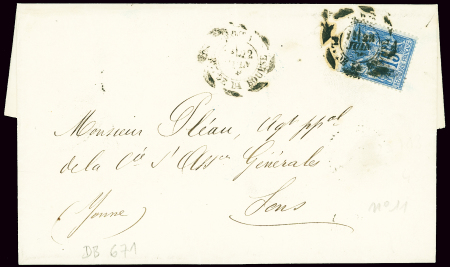 Monsieur Pléau, Agt ppal
de la Cie d'Assces Générales
(Yonne) Sens
DB 671
N° 11
15